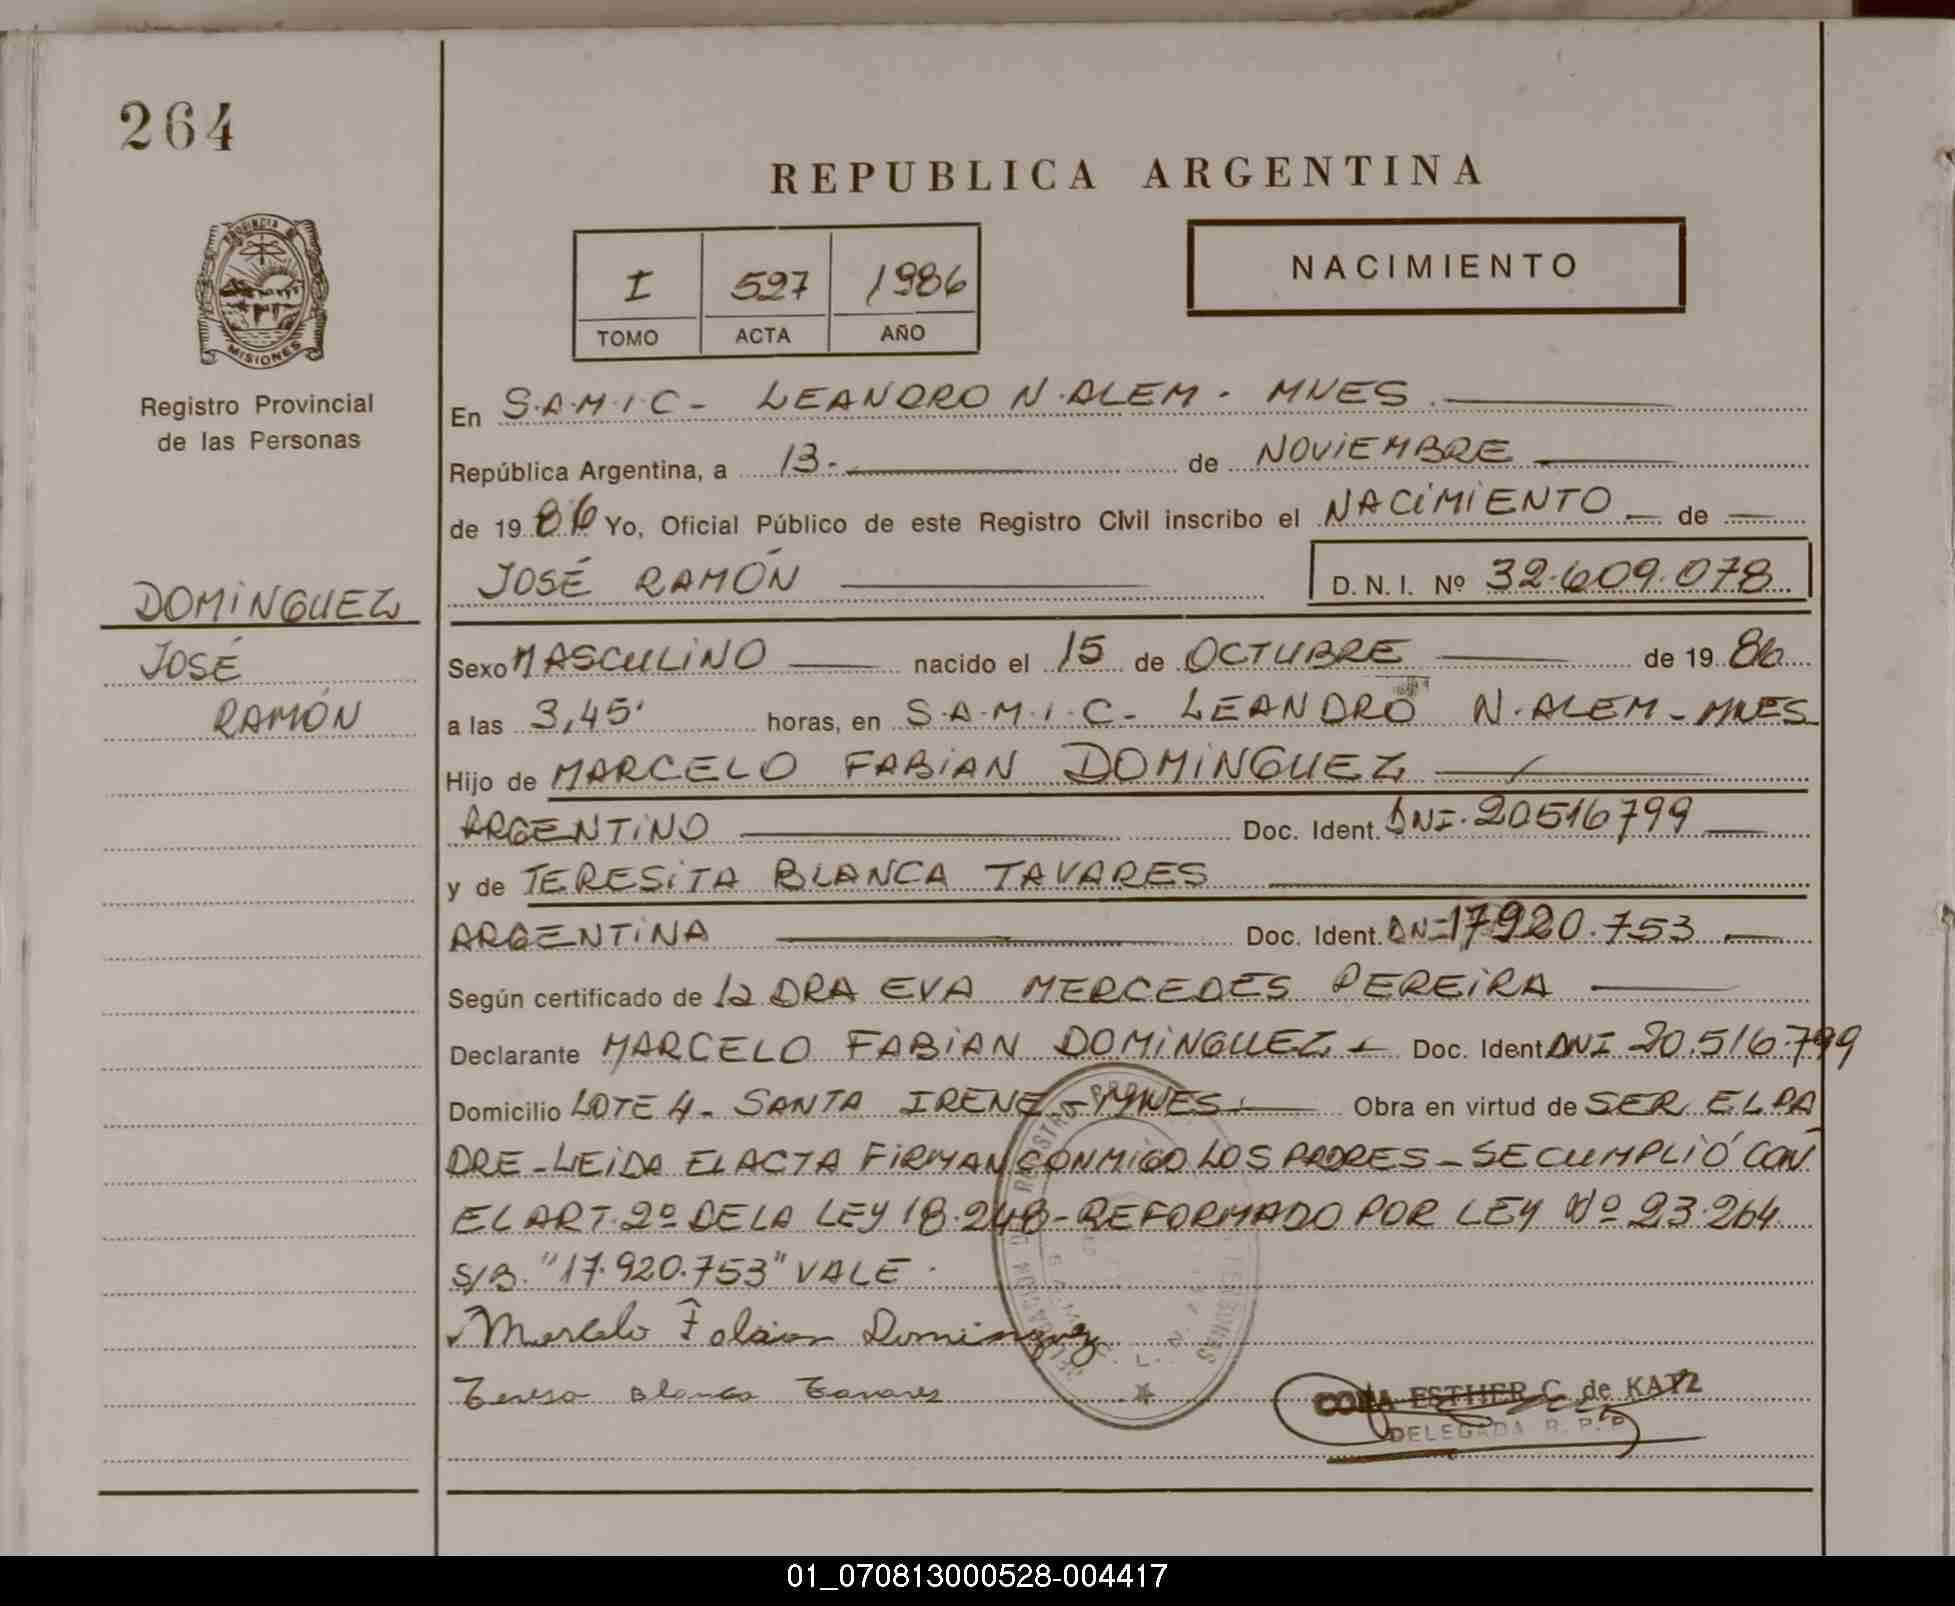 264
REPUBLICA ARGENTINA
NACIMIENTO
I 527 1986
TOMO ACTA AÑO
PROVINCIA DE
MISIONES
Registro Provincial
de las Personas
DOMINGUEZ
JOSÉ
RAMÓN
En S.A.M.I.C - LEANDRO N. ALEM - MNES.
República Argentina, a 13 - de NOVIEMBRE
de 19 86 Yo, Oficial Público de este Registro Civil inscribo el NACIMIENTO de
JOSÉ RAMÓN D. N. I. Nº 32.609.078
Sexo MASCULINO nacido el 15 de OCTUBRE de 19 86
a las 3,45' horas, en S.A.M.I.C - LEANDRO N. ALEM - MNES
Hijo de MARCELO FABIAN DOMINGUEZ
ARGENTINO Doc. Ident. DNI. 20516799
y de TERESITA BLANCA TAVARES
ARGENTINA Doc. Ident. DNI 17920.753
Según certificado de la DRA EVA MERCEDES PEREIRA
Declarante MARCELO FABIAN DOMINGUEZ - Doc. Ident DNI 20.516.799
Domicilio LOTE 4 - SANTA IRENE - MNES - Obra en virtud de SER EL PA
DRE - LEIDA EL ACTA FIRMAN CONMIGO LOS PADRES - SE CUMPLIÓ CON
EL ART. 2º DE LA LEY 18.248 - REFORMADO POR LEY Nº 23.264
S/B. "17.920.753" VALE.
Marcelo Fabian Dominguez
Teresa Blanca Tavares
CORA ESTHER C. de KATZ
DELEGADA R. P. P.
01_070813000528-004417